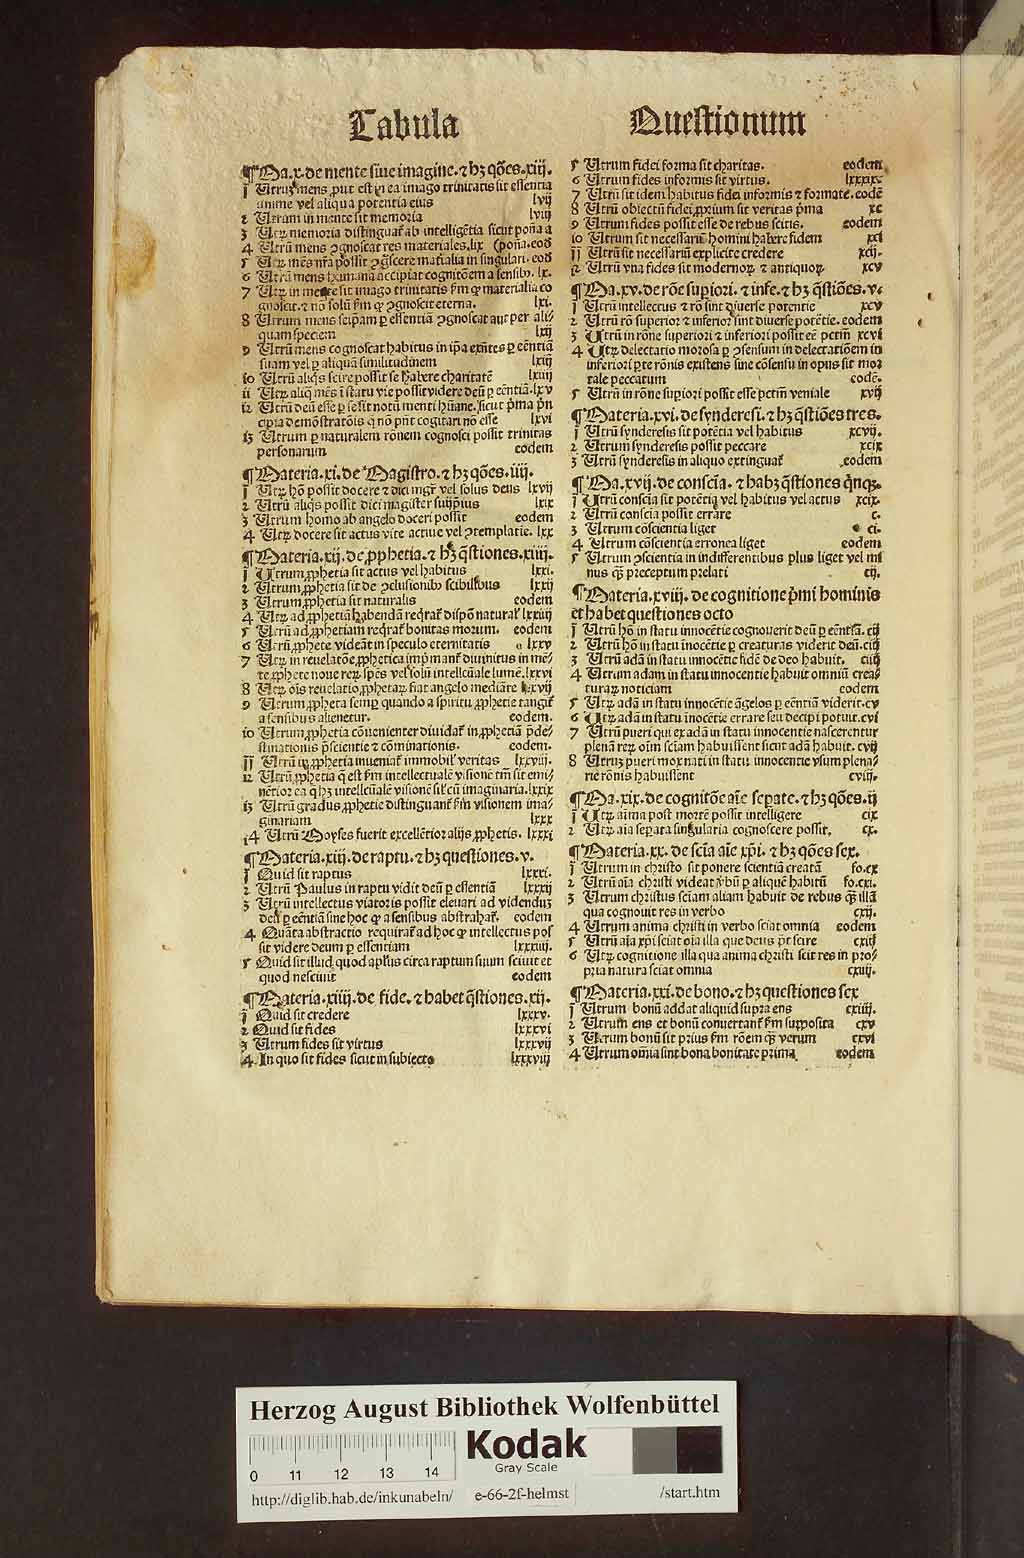 Tabula
Questionum
¶Ma.x. de mente siue imagine. ⁊ hꝫ q̃ões.xiij.
1 Utrum mens, ꝓut est in ea imago trinitatis sit essentia
anime vel aliqua potentia eius lvij
2 Utrum in mente sit memoria lviij
3 Utrꝫ memoria distinguat᷑ ab intelligẽtia sicut potña a
4 Utrũ mens ꝯgnoscat res materiales.lix (potña. eod
5 Utrꝫ mẽs nr̃a possit ꝯgͦscere mat̃ialia in singulari. eod
6 Utrũ mens humana accipiat cognitõem a sensibꝰ. lx.
7 Utrꝫ in mente sit imago trinitatis fm̃ ꝙ materialia co
gnoscit. ⁊ nõ solũ fm̃ ꝙ ꝯgnoscit eterna. lxi.
8 Utrum mens seipam ꝑ essentiã ꝯgnoscat aut per ali⸗
quam speciem lxij
9 Utrũ mens cognoscat habitus in ip̃a exñtes ꝑ eẽntiã
suam vel ꝑ aliquã similitudinem lxiij
10 Utrũ aliq̃s scire possit se habere charitatẽ lxiiij
11 Utrꝫ aliq̃ mẽs ĩ statu vie possit videre deũ ꝑ eẽntiã.lxv
12 Utrũ deũ esse ꝑ se sit notũ menti hũane. sicut p̃ma p̃n
cipia demõstratõis q̃ nõ pñt cogitari nõ esse lxvi
13 Utrum ꝑ naturalem rõnem cognosci possit trinitas
personarum eodem
¶Materia.xi. de Magistro. ⁊ hꝫ q̃ões.iiij.
1 Utrꝫ hõ possit docere ⁊ dici mgr̃ vel solus deus lxvij
2 Utrũ aliq̃s possit dici magister suijp̃ius lxix
3 Utrum homo ab angelo doceri possit eodem
4 Utrꝫ docere sit actus vite actiue vel ꝯtemplatie. lxx
¶Materia.xij. de ꝓphetia. ⁊ hꝫ q̃stiones.xiiij.
1 Utrum ꝓphetia sit actus vel habitus lxxi.
2 Utrum ꝓphetia sit de ꝯclusionibꝰ scibilibus lxxij
3 Utrum ꝓphetia sit naturalis eodem
4 Utrꝫ ad ꝓphetiã habendã req̃rat᷑ dispõ natural᷑ lxxiiij
5 Utrũ ad ꝓphetiam req̃rat᷑ bonitas morum. eodem
6 Utrũ ꝓphete videãt in speculo eternitatis lxxv
7 Utrꝫ in reuelatõe ꝓphetica imp̃mant᷑ diuinitus in mẽ⸗
te ꝓphete noue reꝝ sp̃es vel solũ intellcũale lumẽ.lxxvi
8 Utrꝫ oĩs reuelatio ꝓphetaꝝ fiat angelo mediãte lxxvij
9 Utrum ꝓpheta semꝑ quando a spiritu ꝓphetie tangit᷑
a sensibus alienetur. eodem.
10 Utrum ꝓphetia cõuenienter diuidat᷑ in ꝓphetiã p̃de⸗
stinationis p̃scientie ⁊ cõminationis. eodem.
11 Utrũ in ꝓphetia inueniat᷑ immobil᷑ veritas lxxviij.
12 Utrũ ꝓphetia q̃ est fm̃ intellectualẽ visionẽ tm̃ sit emi⸗
nẽtior ea q̃ hꝫ intellcũalẽ visionẽ sił cũ imaginaria.lxxix
13 Utrũ gradus ꝓphetie distinguant᷑ fm̃ visionem ima⸗
ginariam lxxx
14 Utrũ Moyses fuerit excellẽtior alijs ꝓphetis. lxxxi
¶Materia.xiij. de raptu. ⁊ hꝫ questiones.v.
1 Quid sit raptus lxxxi.
2 Utrũ Paulus in raptu vidit deũ ꝑ essentiã lxxxij
3 Utrũ intellectus viatoris possit eleuari ad videndũ
deũ ꝑ eẽntiã sine hoc ꝙ a sensibus abstrahat᷑. eodem
4 Quãta abstractio requirat᷑ ad hoc ꝙ intellectus pos
sit videre deum ꝑ essentiam lxxxiiij.
5 Quid sit illud quod apl̃us circa raptum suum sciuit et
quod nesciuit eodem
¶Materia.xiiij. de fide. ⁊ habet q̃stiones.xij.
1 Quid sit credere lxxxv.
2 Quid sit fides lxxxvi
3 Utrum fides sit virtus lxxxvij
4 In quo sit fides sicut in subiecto lxxxviij
5 Utrum fidei forma sit charitas. eodem
6 Utrum fides informis sit virtus. lxxxix.
7 Utrũ sit idem habitus fidei informis ⁊ formate. eodẽ
8 Utrũ obiectũ fidei ꝓprium sit veritas p̃ma xc
9 Utrum fides possit esse de rebus scitis. eodem
10 Utrum sit necessariũ homini habere fidem xci
11 Utrũ sit necessariũ explicite credere xcij.
12 Utrũ vna fides sit modernoꝝ ⁊ antiquoꝝ xcv
¶Ma.xv. de rõe supiori. ⁊ infe. ⁊ hꝫ q̃stiões.v.
1 Utrũ intellectus ⁊ rõ sint diuerse potentie xcv
2 Utrũ rõ superior ⁊ inferior sint diuerse potẽtie. eodem
3 Utrũ in rõne superiori ⁊ inferiori possit eẽ pctm̃ xcvi
4 Utrꝫ delectatio morosa ꝑ ꝯsensum in delectatiõem in
inferiori ꝑte rõnis existens sine cõsensu in opus sit mor
tale peccatum eodẽ.
5 Utrũ in rõne supiori possit esse pctm̃ veniale xvij
¶Materia.xvi. de synderesi. ⁊ hꝫ q̃stiões tres.
1 Utrũ synderesis sit potẽtia vel habitus xcvij.
2 Utrum synderesis possit peccare xcix
3 Utrũ synderesis in aliquo extinguat᷑ eodem
¶Ma.xvij. de consciã. ⁊ habꝫ q̃stiones q̃nqꝫ.
1 Utrũ consciã sit potẽtia vel habitus vel actus xcix.
2 Utrũ consciã possit errare c.
3 Utrum cõscientia liget ci.
4 Utrum cõscientia erronea liget eodem
5 Utrum ꝯscientia in indifferentibus plus liget vel mi
nus q̃ꝫ preceptum prelati cij.
¶Materia.xviij. de cognitione p̃mi hominis
et habet questiones octo
1 Utrũ hõ in statu innocẽtie cognouerit deũ ꝑ eẽntiã. cij
2 Utrũ hõ in statu ĩnocẽtie ꝑ creaturas viderit deũ.ciij
3 Utrũ adã in statu innocẽtie fidẽ de deo habuit. ciiij
4 Utrum adam in statu innocentie habuit omniũ crea⸗
turaꝝ noticiam eodem
5 Utrꝫ adã in statu innocẽtie ãgelos ꝑ eẽntiã viderit.cv
6 Utrꝫ adã in statu ĩnocẽtie errare seu decipi potuit.cvi
7 Utrũ pueri qui ex adã in statu innocentie nascerentur
plenã reꝝ oĩm sciam habuissent sicut adã habuit. cvij
8 Utrꝫ pueri mox nati in statu innocentie vsum plena⸗
rie rõnis habuissent cviij.
¶Ma.xix. de cognitõe aĩe sepate. ⁊ hꝫ q̃ões.ij
1 Utrꝫ aĩma post mortẽ possit intelligere cix
2 Utrꝫ aĩa seꝑata singularia cognoscere possit. cx.
¶Materia.xx. de scĩa aĩe xp̃i. ⁊ hꝫ q̃ões sex.
1 Utrum in christo sit ponere scientiã creatã fo.cx
2 Utrũ aĩa christi videat v̾bũ ꝑ aliquẽ habitũ fo.cxi.
3 Utrum christus sciam aliam habuit de rebus q̃ꝫ illã
qua cognouit res in verbo cxij.
4 Utrum anima christi in verbo sciat omnia eodem
5 Utrũ aĩa xp̃i sciat oĩa illa que deus põt scire cxiij
6 Utrꝫ cognitione illa qua anima christi scit res in pro⸗
pria natura sciat omnia cxiij.
¶Materia.xxi. de bono. ⁊ hꝫ questiones sex
1 Utrum bonũ addat aliquid supra ens cxiiij.
2 Utrum ens et bonũ conuertant᷑ fm̃ supposita cxv
3 Utrum bonũ sit prius fm̃ rõem q̃ꝫ verum cxvi
4 Utrum om̃ia sint bona bonitate prima eodem
Herzog August Bibliothek Wolfenbüttel
0 11 12 13 14
Kodak
Gray Scale
http://diglib.hab.de/inkunabeln/ e-66-2f-helmst /start.htm